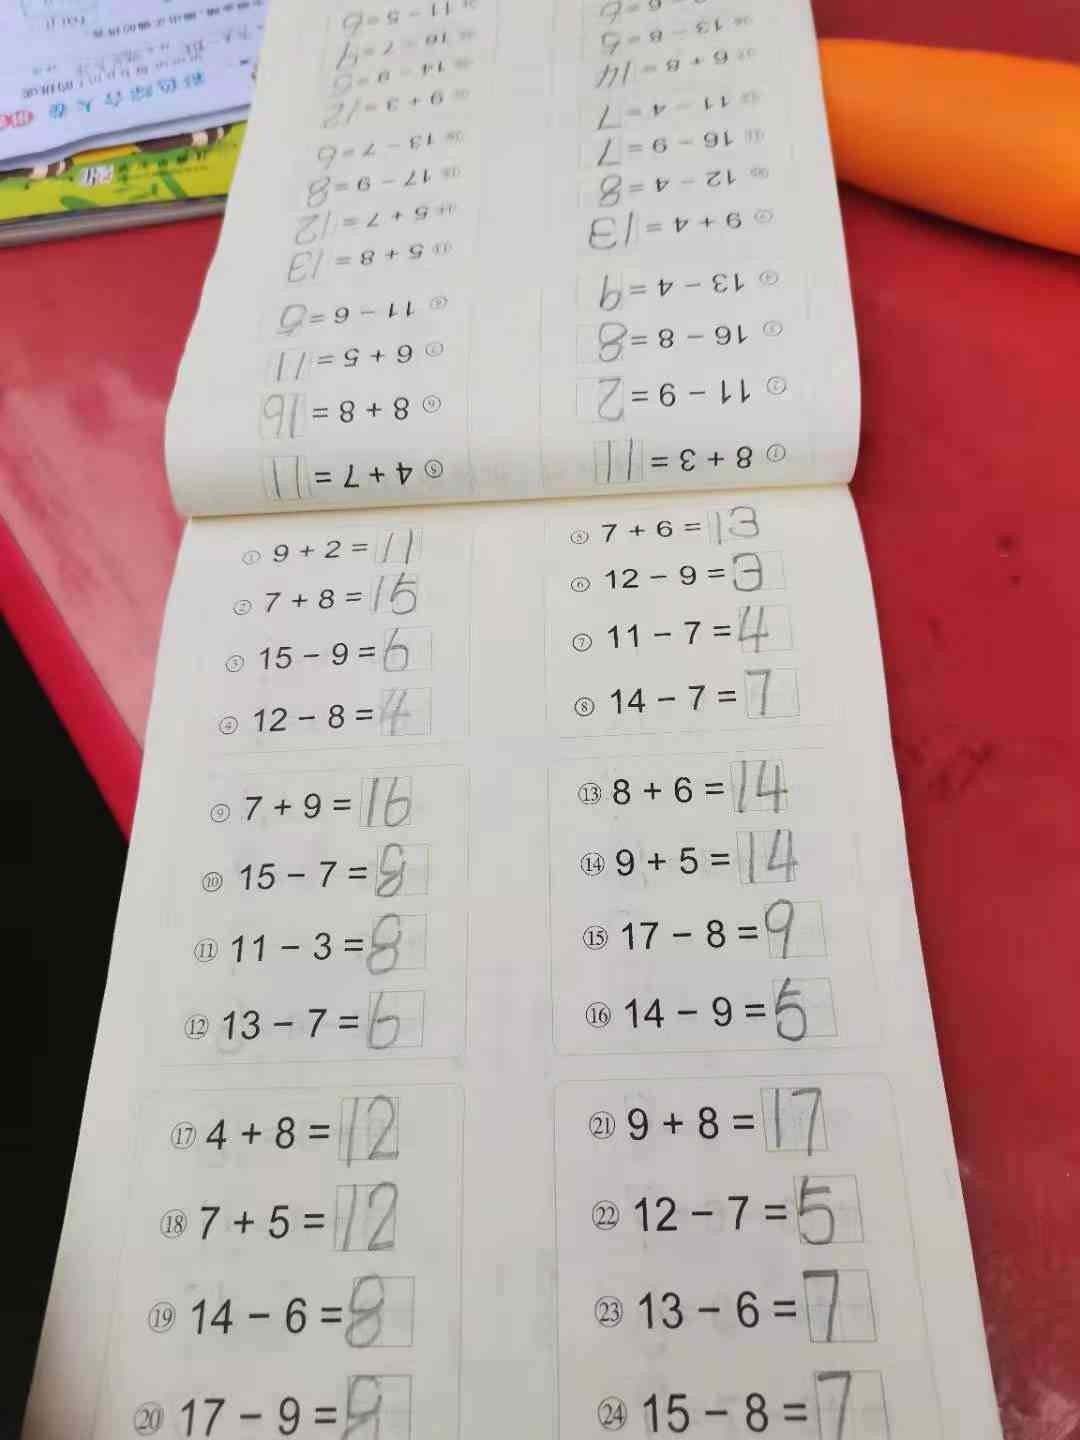 ① 9 + 2 = 11
② 7 + 8 = 15
③ 15 − 9 = 6
④ 12 − 8 = 4
⑤ 7 + 6 = 13
⑥ 12 − 9 = 3
⑦ 11 − 7 = 4
⑧ 14 − 7 = 7
⑨ 7 + 9 = 16
⑩ 15 − 7 = 8
⑪ 11 − 3 = 8
⑫ 13 − 7 = 6
⑬ 8 + 6 = 14
⑭ 9 + 5 = 14
⑮ 17 − 8 = 9
⑯ 14 − 9 = 5
⑰ 4 + 8 = 12
⑱ 7 + 5 = 12
⑲ 14 − 6 = 8
⑳ 17 − 9 = 8
㉑ 9 + 8 = 17
㉒ 12 − 7 = 5
㉓ 13 − 6 = 7
㉔ 15 − 8 = 7
① 8 + 3 = 11
② 11 − 9 = 2
③ 16 − 8 = 8
④ 13 − 4 = 9
⑤ 4 + 7 = 11
⑥ 8 + 8 = 16
⑦ 6 + 5 = 11
⑧ 11 − 6 = 5
⑨ 9 + 4 = 13
⑩ 12 − 4 = 8
⑪ 16 − 9 = 7
⑫ 11 − 4 = 7
⑬ 5 + 8 = 13
⑭ 5 + 7 = 12
⑮ 17 − 9 = 8
⑯ 13 − 7 = 6
⑰ 6 + 8 = 14
⑱ 13 − 8 = 5
9 + 3 = 12
14 − 9 = 5
11 − 5 = 6